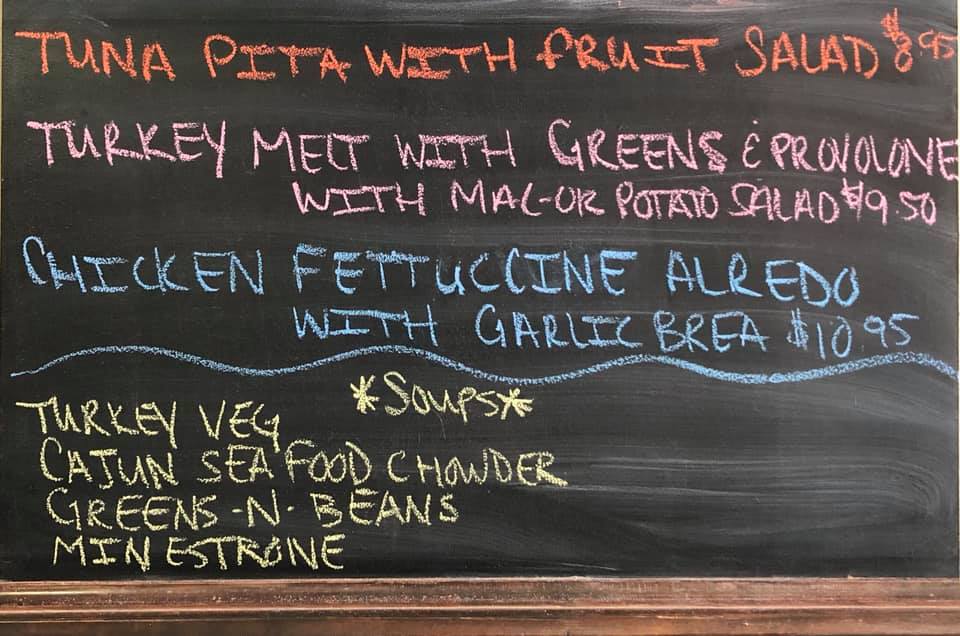 TUNA PITA WITH FRUIT SALAD $8.95
TURKEY MELT WITH GREENS & PROVOLONE
WITH MAC-OR POTATO SALAD $9.50
CHICKEN FETTUCCINE ALREDO
WITH GARLIC BREA $10.95
*SOUPS*
TURKEY VEG
CAJUN SEA FOOD CHOWDER
GREENS-N-BEANS
MINESTRONE